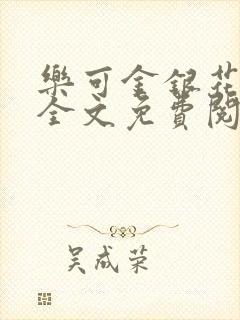 樂可金銀花
全文免費閱
吴成荣